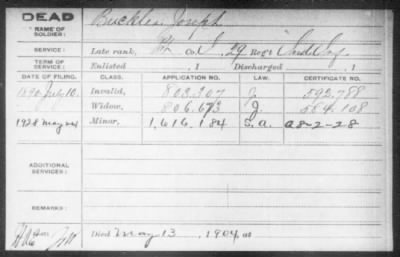 DEAD
NAME OF SOLDIER:
Buckles, Joseph
SERVICE:
Late rank, Pt Co. I, 29 Reg't Ind. Inf.
TERM OF SERVICE:
Enlisted , 1 Discharged , 1
DATE OF FILING. CLASS. APPLICATION NO. LAW. CERTIFICATE NO.
1890 July 10. Invalid, 802.307 J. 592.788
Widow, 806.673 J. 584.108
1928 May 24 Minor, 1,616,184 S.a. a8-2-28
ADDITIONAL SERVICES:
REMARKS:
Died May 13, 1904, at